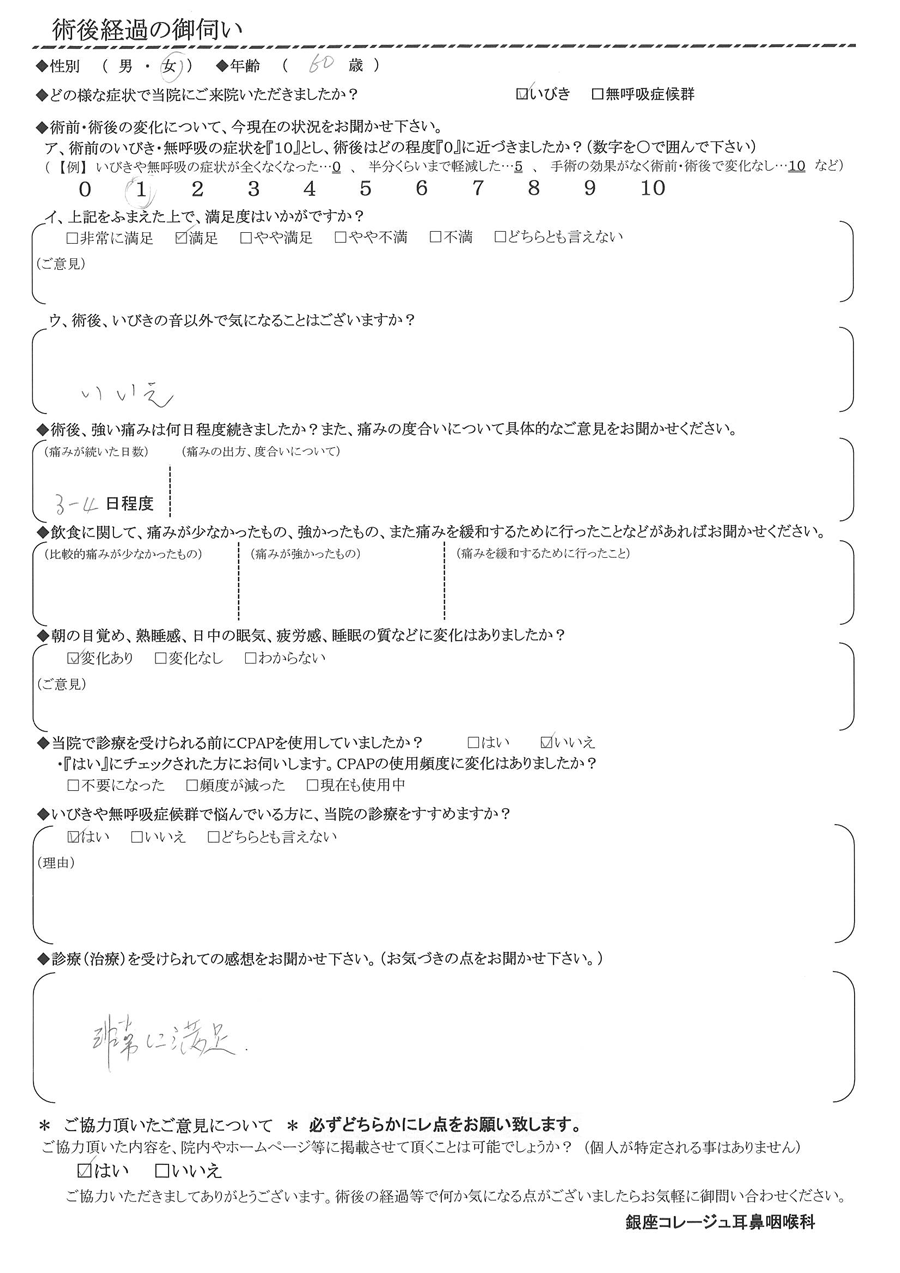 術後経過の御伺い
◆性別 （ 男 ・ 女 ） ◆年齢 （ 60 歳 ）
◆どの様な症状で当院にご来院いただきましたか？ ☑いびき □無呼吸症候群
◆術前・術後の変化について、今現在の状況をお聞かせ下さい。
ア、術前のいびき・無呼吸の症状を『10』とし、術後はどの程度『0』に近づきましたか？（数字を○で囲んで下さい）
（ 【例】 いびきや無呼吸の症状が全くなくなった…0 、 半分くらいまで軽減した…5 、 手術の効果がなく術前・術後で変化なし…10 など）
0 1 2 3 4 5 6 7 8 9 10
イ、上記をふまえた上で、満足度はいかがですか？
□非常に満足 ☑満足 □やや満足 □やや不満 □不満 □どちらとも言えない
（ご意見）
ウ、術後、いびきの音以外で気になることはございますか？
いいえ
◆術後、強い痛みは何日程度続きましたか？また、痛みの度合いについて具体的なご意見をお聞かせください。
（痛みが続いた日数） （痛みの出方、度合いについて）
3-4 日程度
◆飲食に関して、痛みが少なかったもの、強かったもの、また痛みを緩和するために行ったことなどがあればお聞かせください。
（比較的痛みが少なかったもの） （痛みが強かったもの） （痛みを緩和するために行ったこと）
◆朝の目覚め、熟睡感、日中の眠気、疲労感、睡眠の質などに変化はありましたか？
☑変化あり □変化なし □わからない
（ご意見）
◆当院で診療を受けられる前にCPAPを使用していましたか？ □はい ☑いいえ
・『はい』にチェックされた方にお伺いします。CPAPの使用頻度に変化はありましたか？
□不要になった □頻度が減った □現在も使用中
◆いびきや無呼吸症候群で悩んでいる方に、当院の診療をすすめますか？
☑はい □いいえ □どちらとも言えない
（理由）
◆診療（治療）を受けられての感想をお聞かせ下さい。（お気づきの点をお聞かせ下さい。）
非常に満足.
＊ ご協力頂いたご意見について ＊ 必ずどちらかにレ点をお願い致します。
ご協力頂いた内容を、院内やホームページ等に掲載させて頂くことは可能でしょうか？ （個人が特定される事はありません）
☑はい □いいえ
ご協力いただきましてありがとうございます。術後の経過等で何か気になる点がございましたらお気軽に御問い合わせください。
銀座コレージュ耳鼻咽喉科